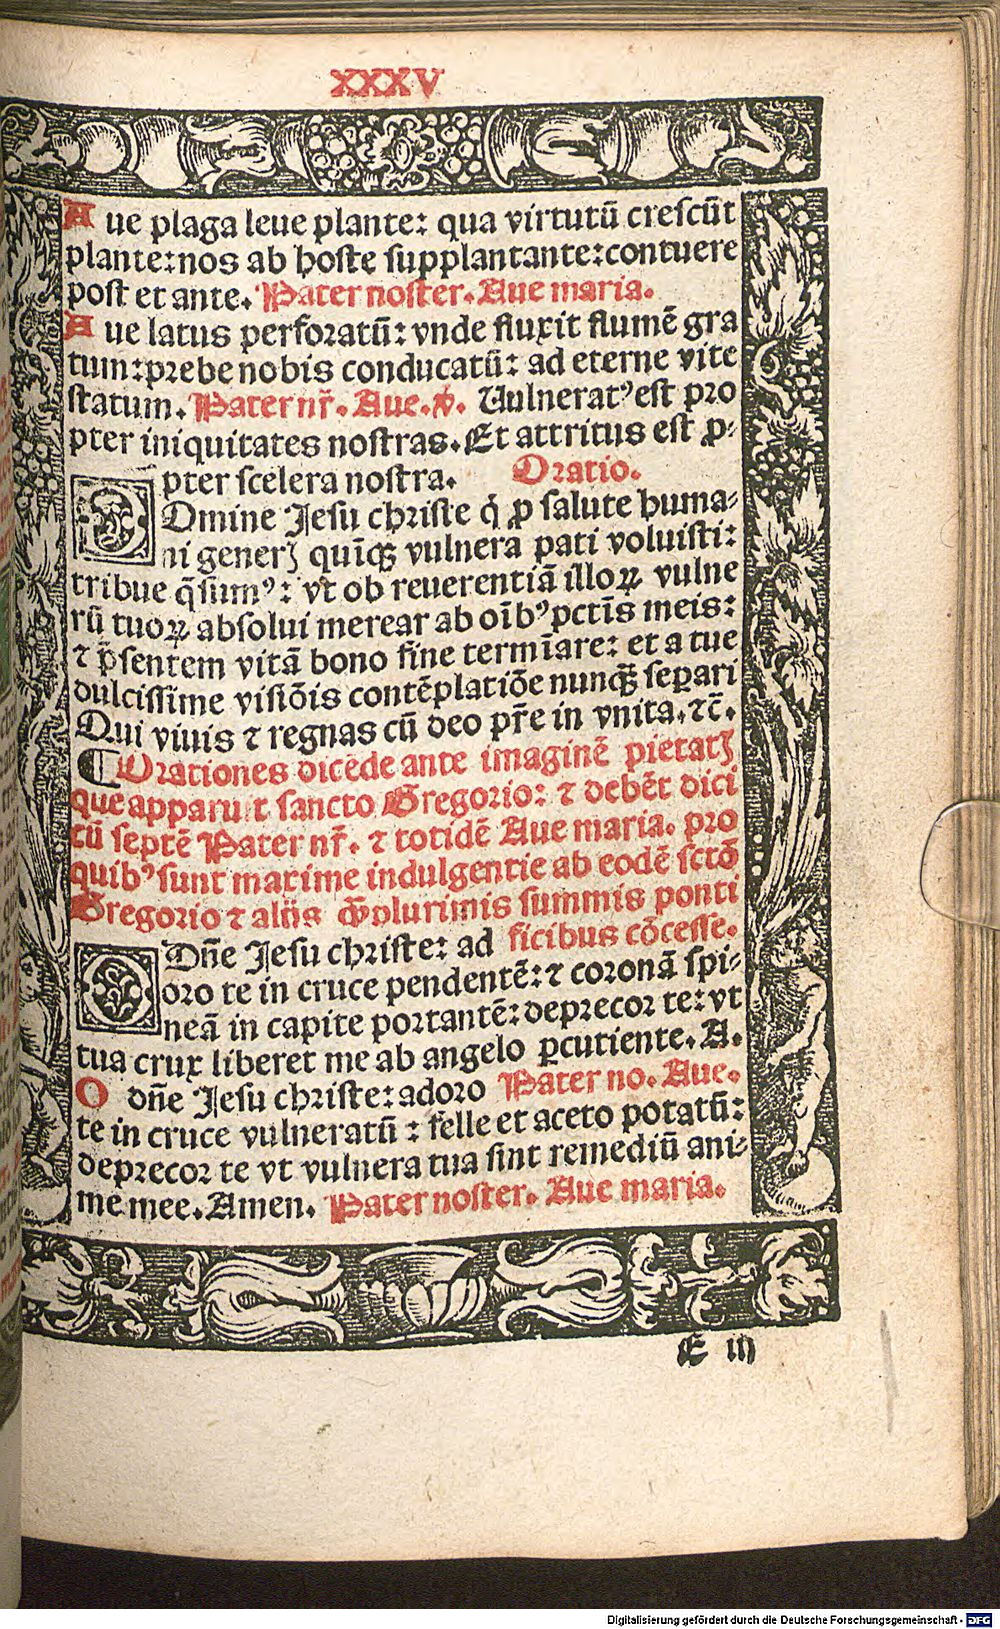 XXXV
Aue plaga leue plante: qua virtutū crescūt
plante: nos ab hoste supplantante: contuere
post et ante. Pater noster. Aue maria.
Aue latus perforatū: vnde fluxit flumē gra
tum: prebe nobis conducatū: ad eterne vite
statum. Pater nr̄. Aue. Uulneratꝰ est pro
pter iniquitates nostras. Et attritus est ꝓ-
pter scelera nostra. Oratio.
DOmine Jesu christe q̇ ꝓ salute huma-
ni generꝭ quīqꝫ vulnera pati voluisti:
tribue q̄sumꝰ: vt ob reuerentiā illoꝝ vulne
rū tuoꝝ absolui merear ab oībꝰ pctīs meis:
⁊ p̄sentem vitā bono fine termīare: et a tue
dulcissime visiōis contēplatiōe nunqꝫ separi
Qui viuis ⁊ regnas cū deo pr̄e in vnita. ⁊c̄.
¶ Orationes dicēde ante imaginē pietatꝭ
que apparuit sancto Gregorio: ⁊ debēt dici
cū septē Pater nr̄. ⁊ totidē Aue maria. pro
quibꝰ sunt maxime indulgentie ab eodē sctō
Gregorio ⁊ aliis qꝫplurimis summis ponti
ficibus cōcesse.
ODn̄e Jesu christe: ad
oro te in cruce pendentē: ⁊ coronā spi-
neā in capite portantē: deprecor te: vt
tua crux liberet me ab angelo ꝑcutiente. A.
Pater no. Aue.
O dn̄e Jesu christe: adoro
te in cruce vulneratū: felle et aceto potatū:
deprecor te vt vulnera tua sint remediū ani-
me mee. Amen. Pater noster. Aue maria.
E iij
Digitalisierung gefördert durch die Deutsche Forschungsgemeinschaft - DFG